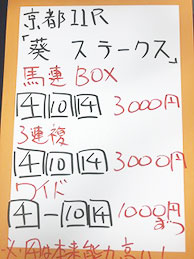 京都11R
「葵 ステークス」
馬連 BOX
4 10 14 3000円
3連複
4 10 14 3000円
ワイド
4-10 14 1000円ずつ